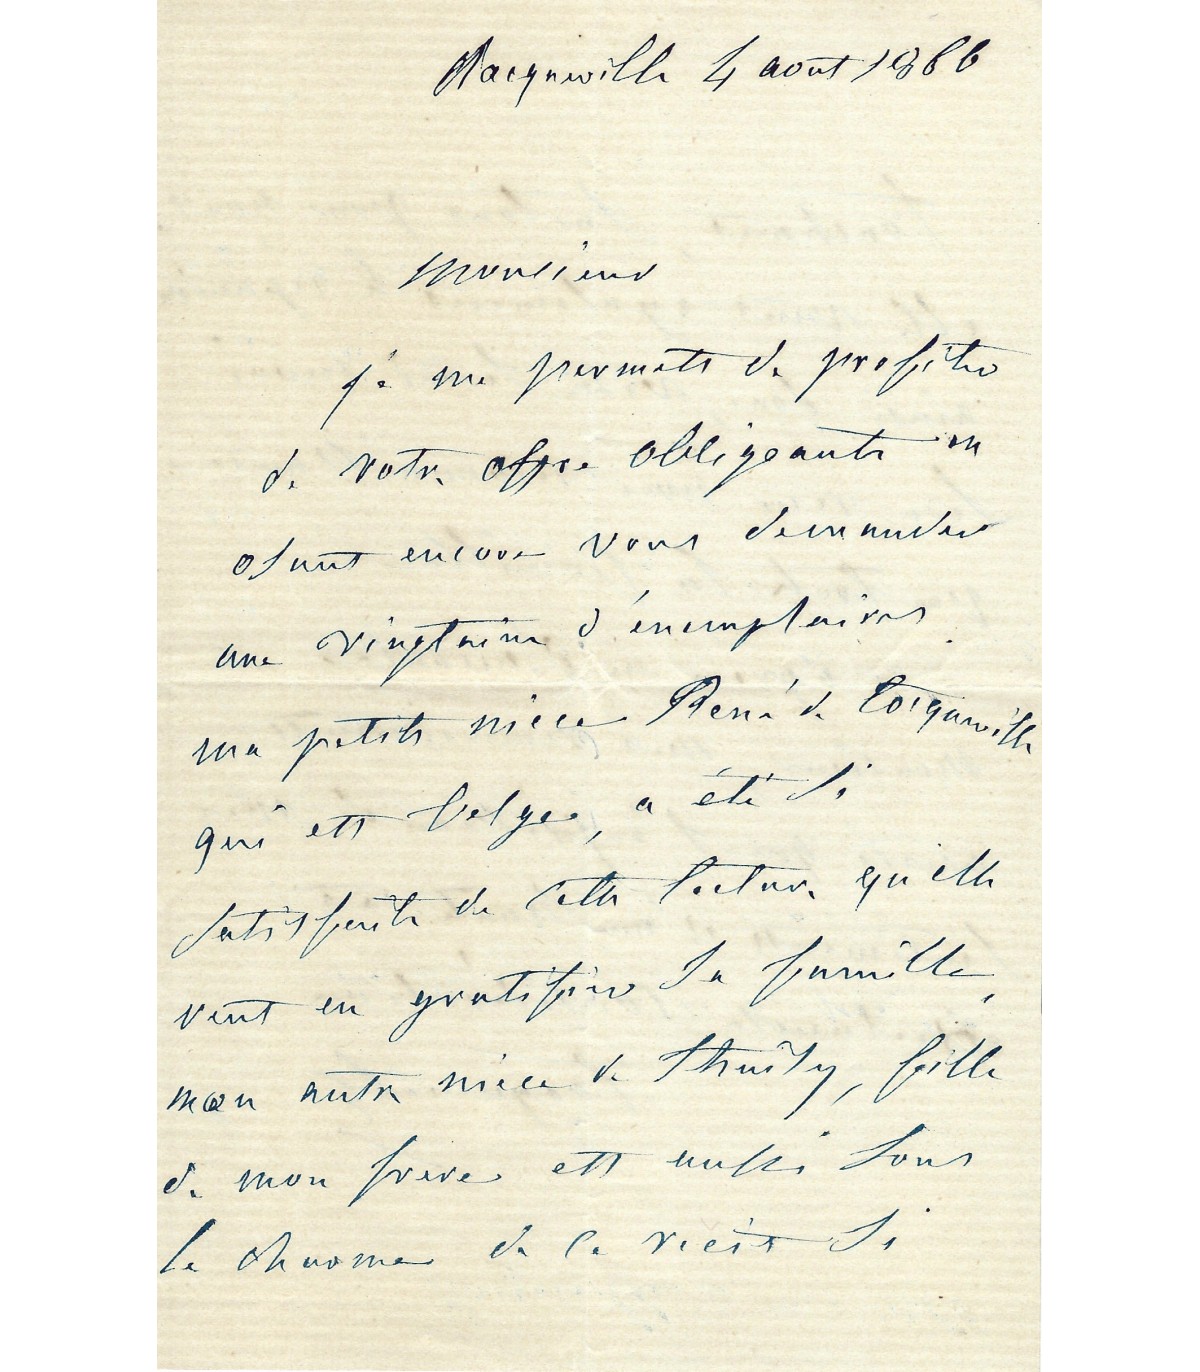 Nacqueville 4 aout 1866
Monsieur
je me permets de profiter
de votre offre obligeante en
osant encore vous demander
une vingtaine d'éxemplaires
ma petite niece René de Tocqueville
qui est belge, a été si
satisfaite de cette lecture qu'elle
veut en gratifier sa famille,
mon autre niece de fille
de mon frere est aussi sous
le charme de ce récit si